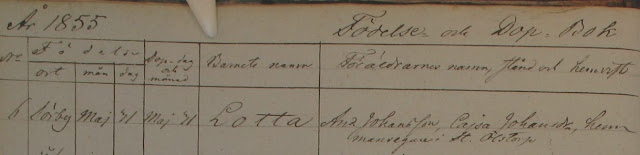 År 1855 Födelse- och Dop-Bok
No Födelse Dop-dag och månad Barnets namn Föräldrarnes namn, stånd och hemvist
ort mån dag
6 Lörby Maj 21 Maj 21 Lotta And. Johansson, Cajsa Johansdr, hem-
mansegare i St. Olstorp